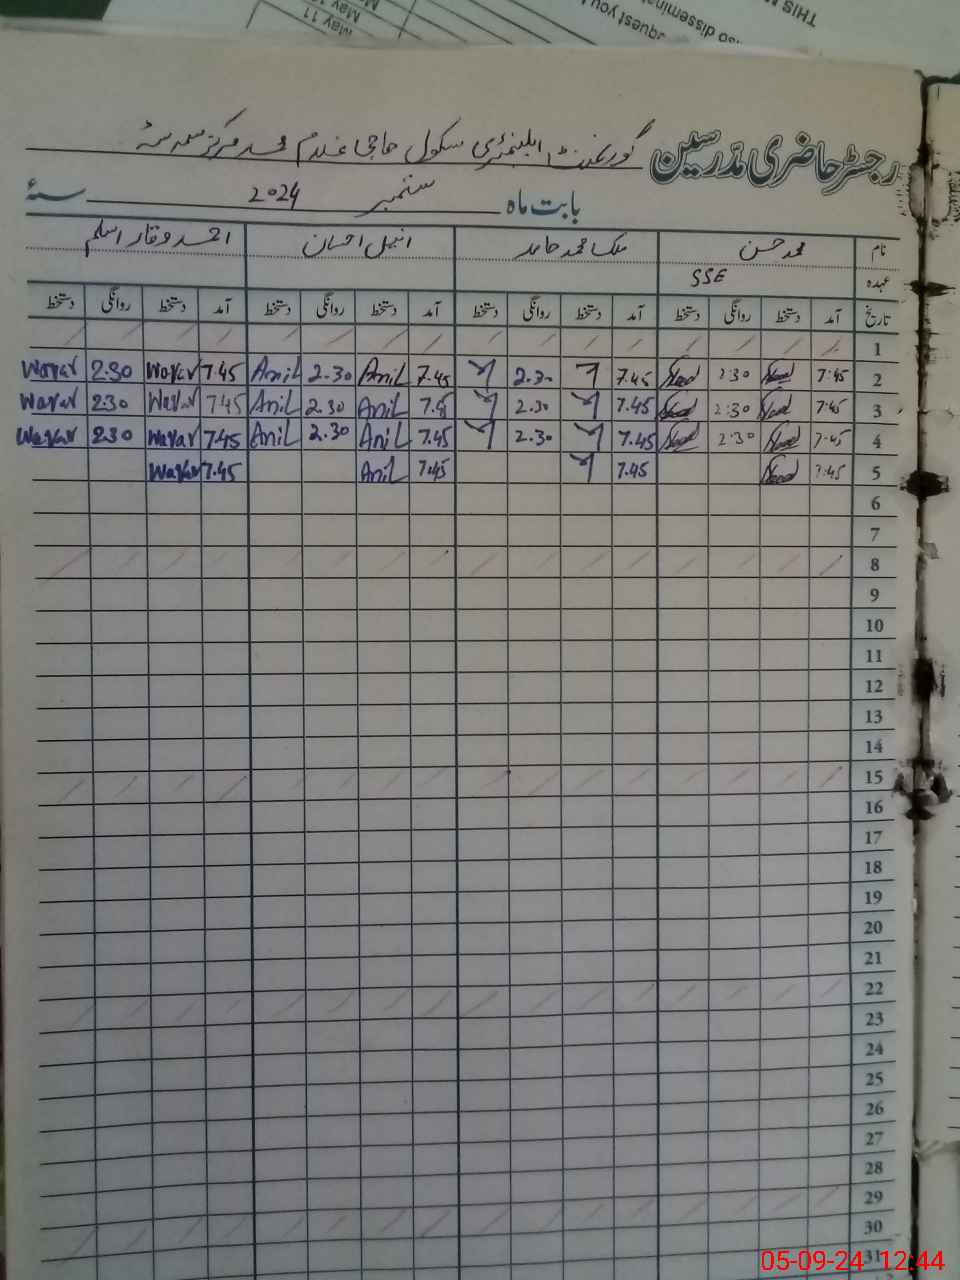 THIS
so disseminat
quest you
May 11
May
رجسٹر حاضری مدرسین گورنمنٹ ایلیمنٹری سکول حاجی غلام محمد مرکز سمہ سٹہ
بابت ماہ ستمبر 2024 سنہ
نام محمد حسن ملک محمد حامد انیل احسان احمد وقار اسلم
عہدہ SSE
تاریخ آمد دستخط روانگی دستخط آمد دستخط روانگی دستخط آمد دستخط روانگی دستخط آمد دستخط روانگی دستخط
1
2 7:45 2:30 7.45 2.30 7.45 Anil 2.30 Anil 7.45 Waqar 2.30 Waqar
3 7:45 2:30 7.45 2.30 7.45 Anil 2.30 Anil 7.45 Waqar 2.30 Waqar
4 7:45 2:30 7.45 2.30 7.45 Anil 2.30 Anil 7.45 Waqar 2.30 Waqar
5 7:45 7.45 7.45 Anil 7.45 Waqar
6
7
8
9
10
11
12
13
14
15
16
17
18
19
20
21
22
23
24
25
26
27
28
29
30
31
05-09-24 12:44